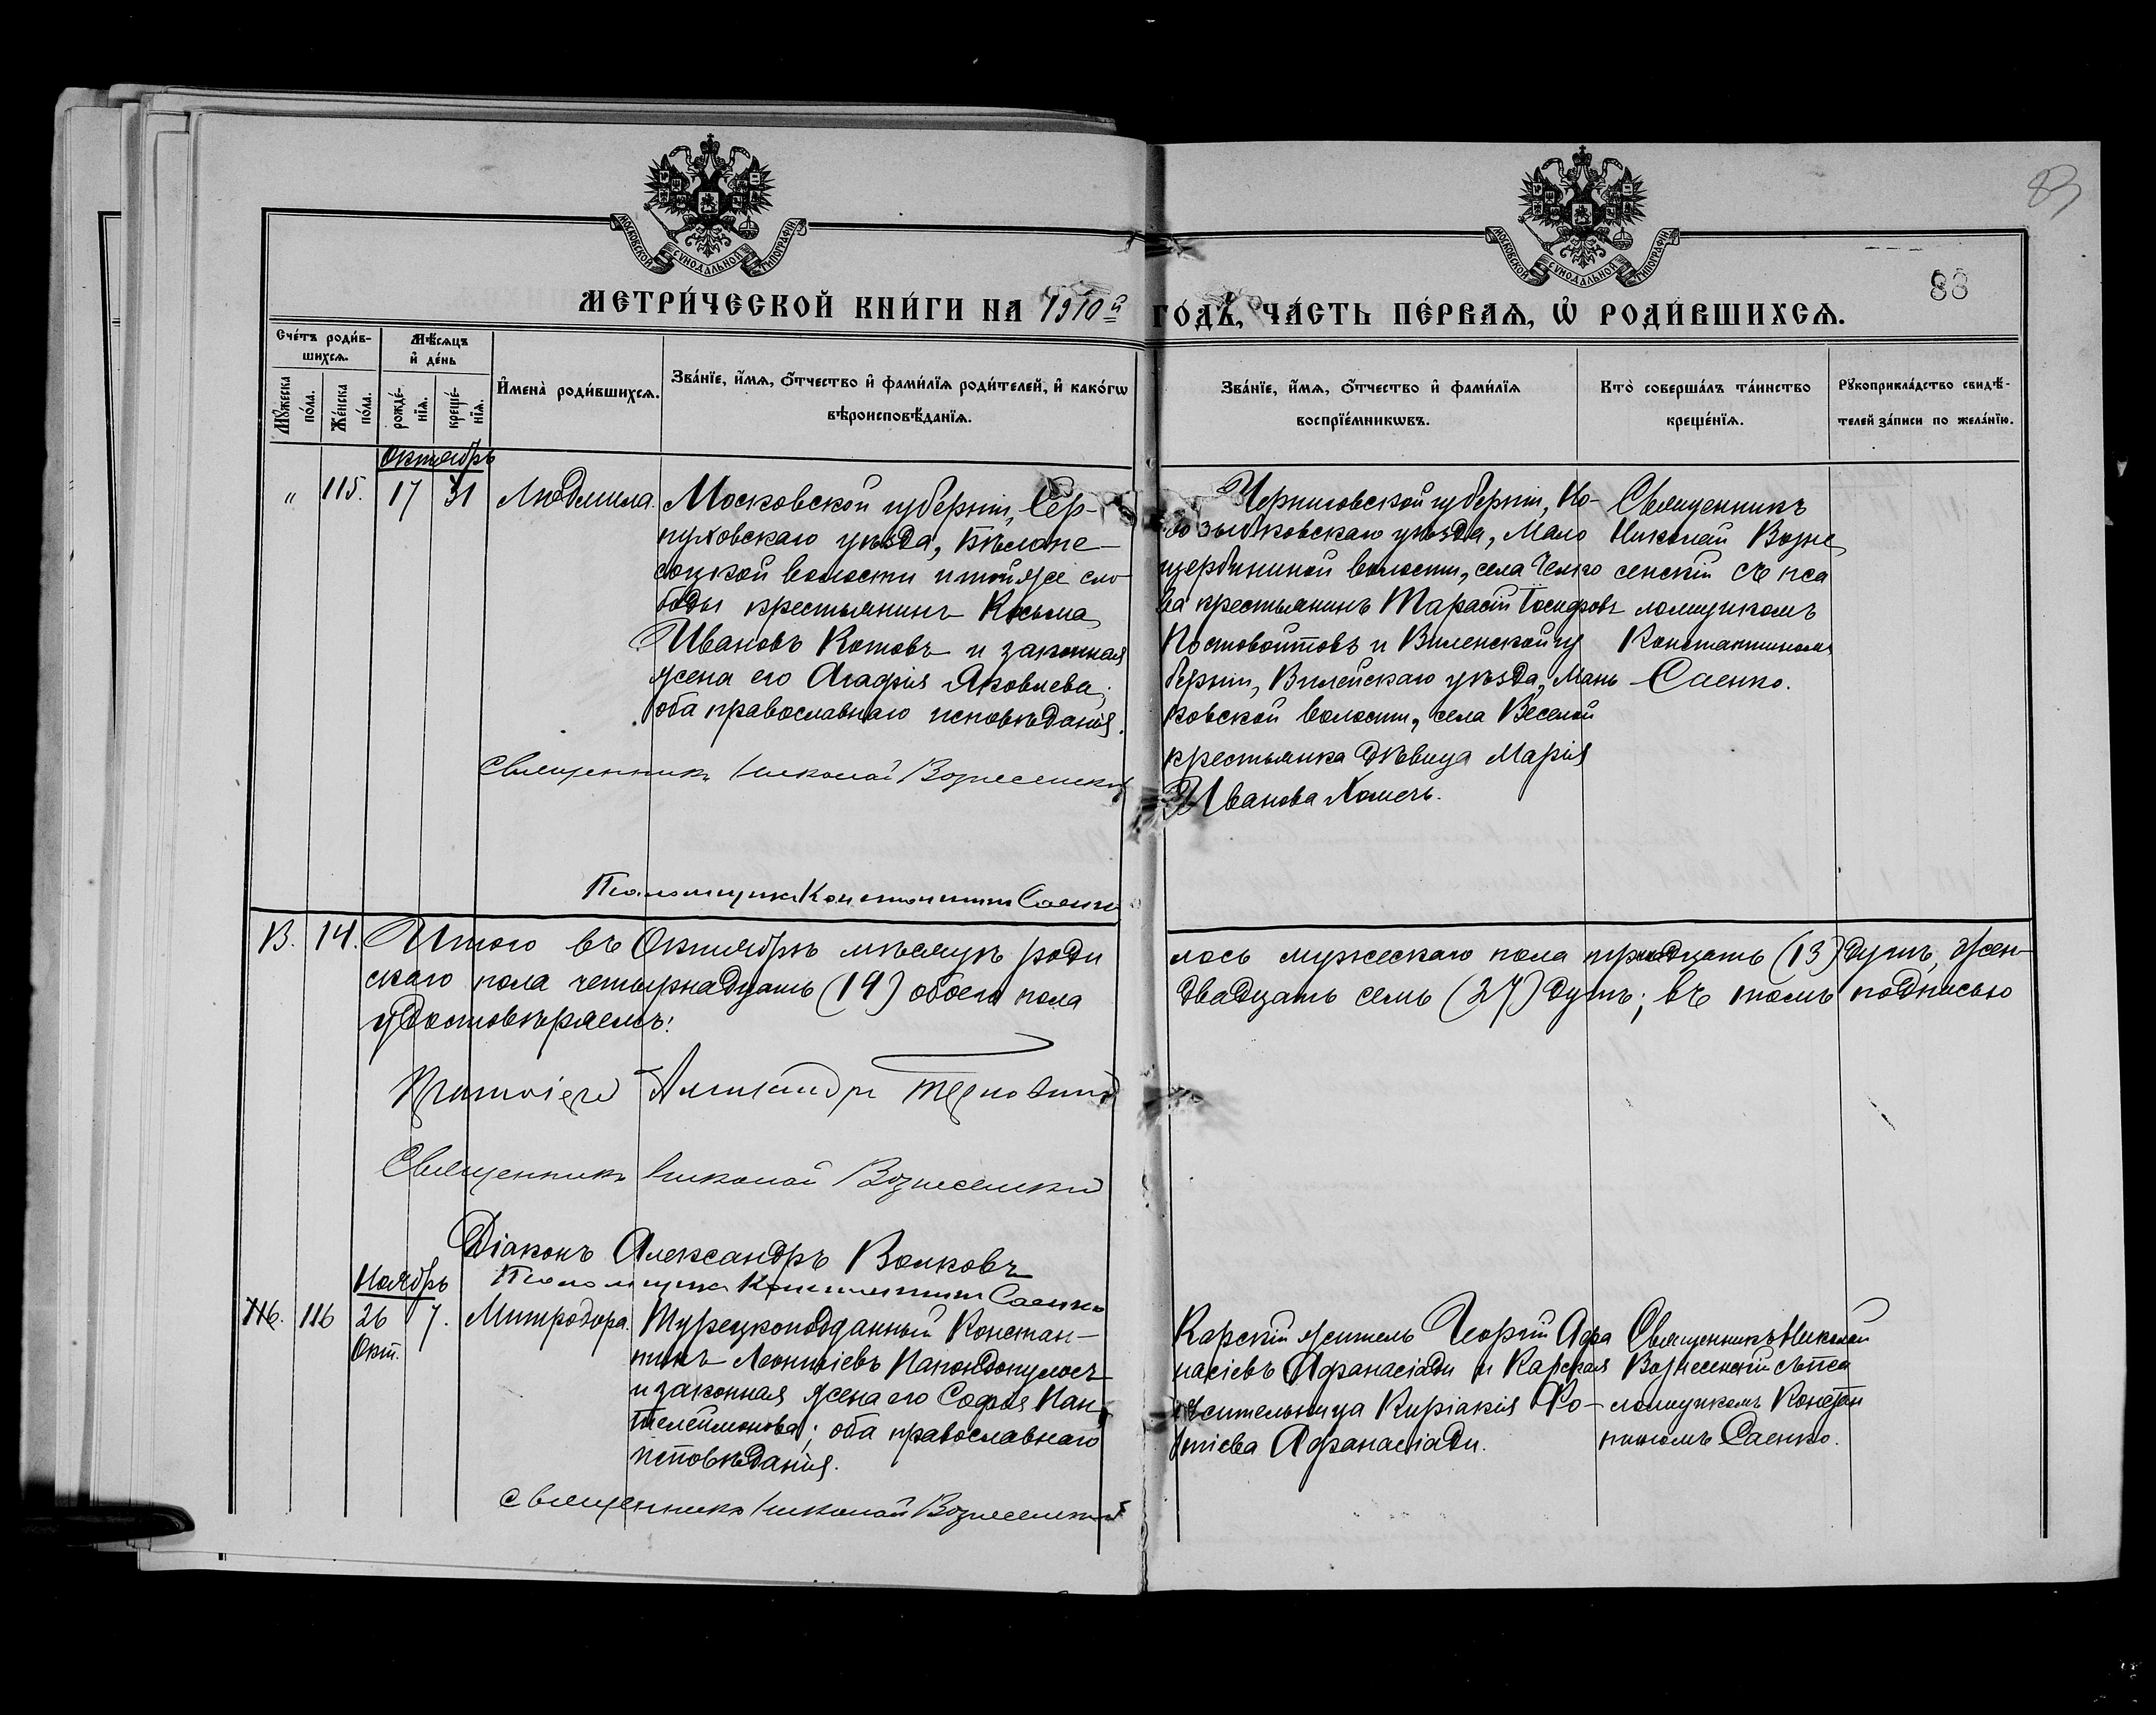 МОСКОВСКОЙ СѴНОДАЛЬНОЙ ТИПОГРАФІИ.
МОСКОВСКОЙ СѴНОДАЛЬНОЙ ТИПОГРАФІИ.
88
МЕТРИ́ЧЕСКОЙ КНИ́ГИ НА 1910й ГО́ДЪ, ЧА́СТЬ ПЕ́РВАѦ, Ѡ҆ РОДИ́ВШИХСѦ.
Сче́тъ роди́в-
шихсѧ.
Мꙋжеска по́ла.
Же́нска по́ла.
Мѣ́сѧцъ
и҆ де́нь
рожде́-
нїѧ.
креще́-
нїѧ.
И҆мена̀ роди́вшихсѧ.
Зва́нїе, и҆́мѧ, ѻ҆́тчество и҆ фами́лїѧ роди́телей, и҆ како́гѡ
вѣроисповѣ́данїѧ.
Зва́нїе, и҆́мѧ, ѻ҆́тчество и҆ фами́лїѧ
воспрїе́мникѡвъ.
Кто̀ соверша́лъ та́инство
креще́нїѧ.
Рꙋкоприкла́дство свидѣ́-
телей за́писи по жела́нїю.
Октябрь
" 115. 17 31 Людмила.
Московской губерніи, Сер-
пуховскаго уѣзда, Бѣлопе-
соцкой волости и той же сло-
боды крестьянинъ Косьма
Ивановъ Котовъ и законная
жена его Агафія Яковлева;
оба православнаго исповѣданія.
Священникъ Николай Вознесенскій
Псаломщикъ Константинъ Саенко
Черниговской губерніи, Но-
возыбковскаго уѣзда, Мало
щербининой волости, села Челхо
ва крестьянинъ Тарасій Іосифовъ
Постовойтовъ и Виленской гу
берніи, Вилейскаго уѣзда, Мань
ковской волости, села Веселой
крестьянка дѣвица Марія
Иванова Хомечъ.
Священникъ
Николай Возне
сенскій съ пса
ломщикомъ
Константиномъ
Саенко.
13. 14. Итого въ Октябрѣ мѣсяцѣ роди лось мужескаго пола тринадцать (13) душъ, жен-
скаго пола четырнадцать (14) обоего пола двадцать семь (27) душъ; въ томъ подписью
удостовѣряемъ:
Протоіерей Александръ
Священникъ Николай Вознесенскій
Діаконъ Александръ Волковъ
Псаломщикъ Константинъ Саенко
Ноябрь
116. 116 26 7. Митродора.
Окт.
Турецкоподданный Констан-
тинъ Леонтіевъ Папандопулосъ
и законная жена его Софія Пан-
телеймонова; оба православнаго
исповѣданія.
Священникъ Николай Вознесенскій
Карскій житель Георгій Афа
насіевъ Афанасіади и Карская
жительница Киріакія Фо-
тіева Афанасіади.
Священникъ Николай
Вознесенскій съ пса
ломщикомъ Констан
тиномъ Саенко.